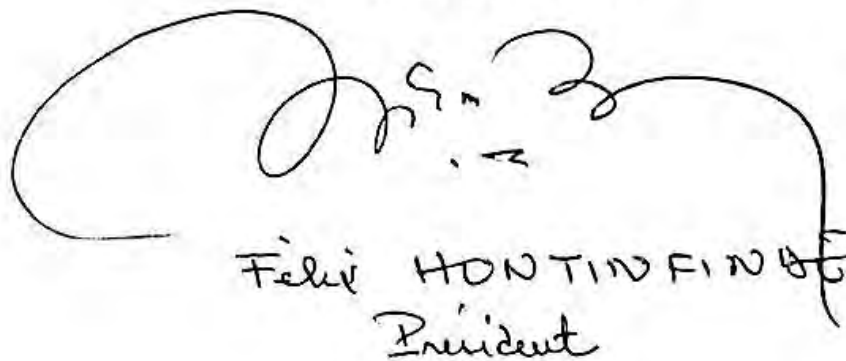 Félix HONTINFINDÉ
Président